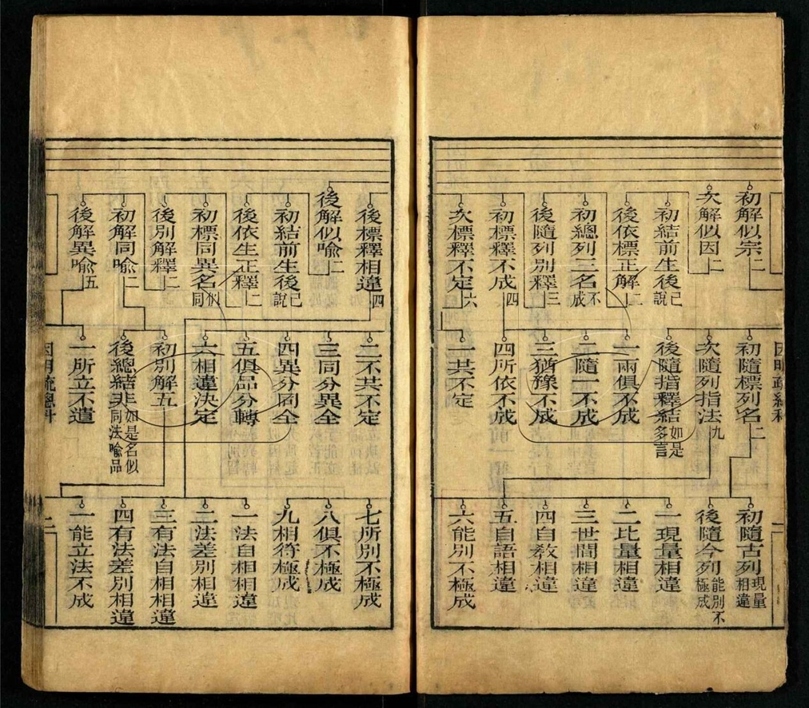 初解似宗二
次解似因二
初結前生後已說
後依標正解二
初總列三名不成
後隨列別釋三
初標釋不成四
次標釋不定六
初隨標列名二
次隨列指法九
後隨指釋結如是多言
一兩俱不成
二隨一不成
三猶豫不成
四所依不成
一共不定
初隨古列現量相違
後隨今列能別不極成
一現量相違
二比量相違
三世間相違
四自教相違
五自語相違
六能別不極成
後標釋相違四
後解似喻二
初結前生後已說
後依生正釋二
初標同異名似同
後別解釋二
初解同喻二
後解異喻五
二不共不定
三同分異全
四異分同全
五俱品分轉
六相違決定
初別解五
後總結非如是名似同法喻品
一所立不遣
因明疏總科
七所別不極成
八俱不極成
九相符極成
一法自相相違
二法差別相違
三有法自相相違
四有法差別相違
一能立法不成